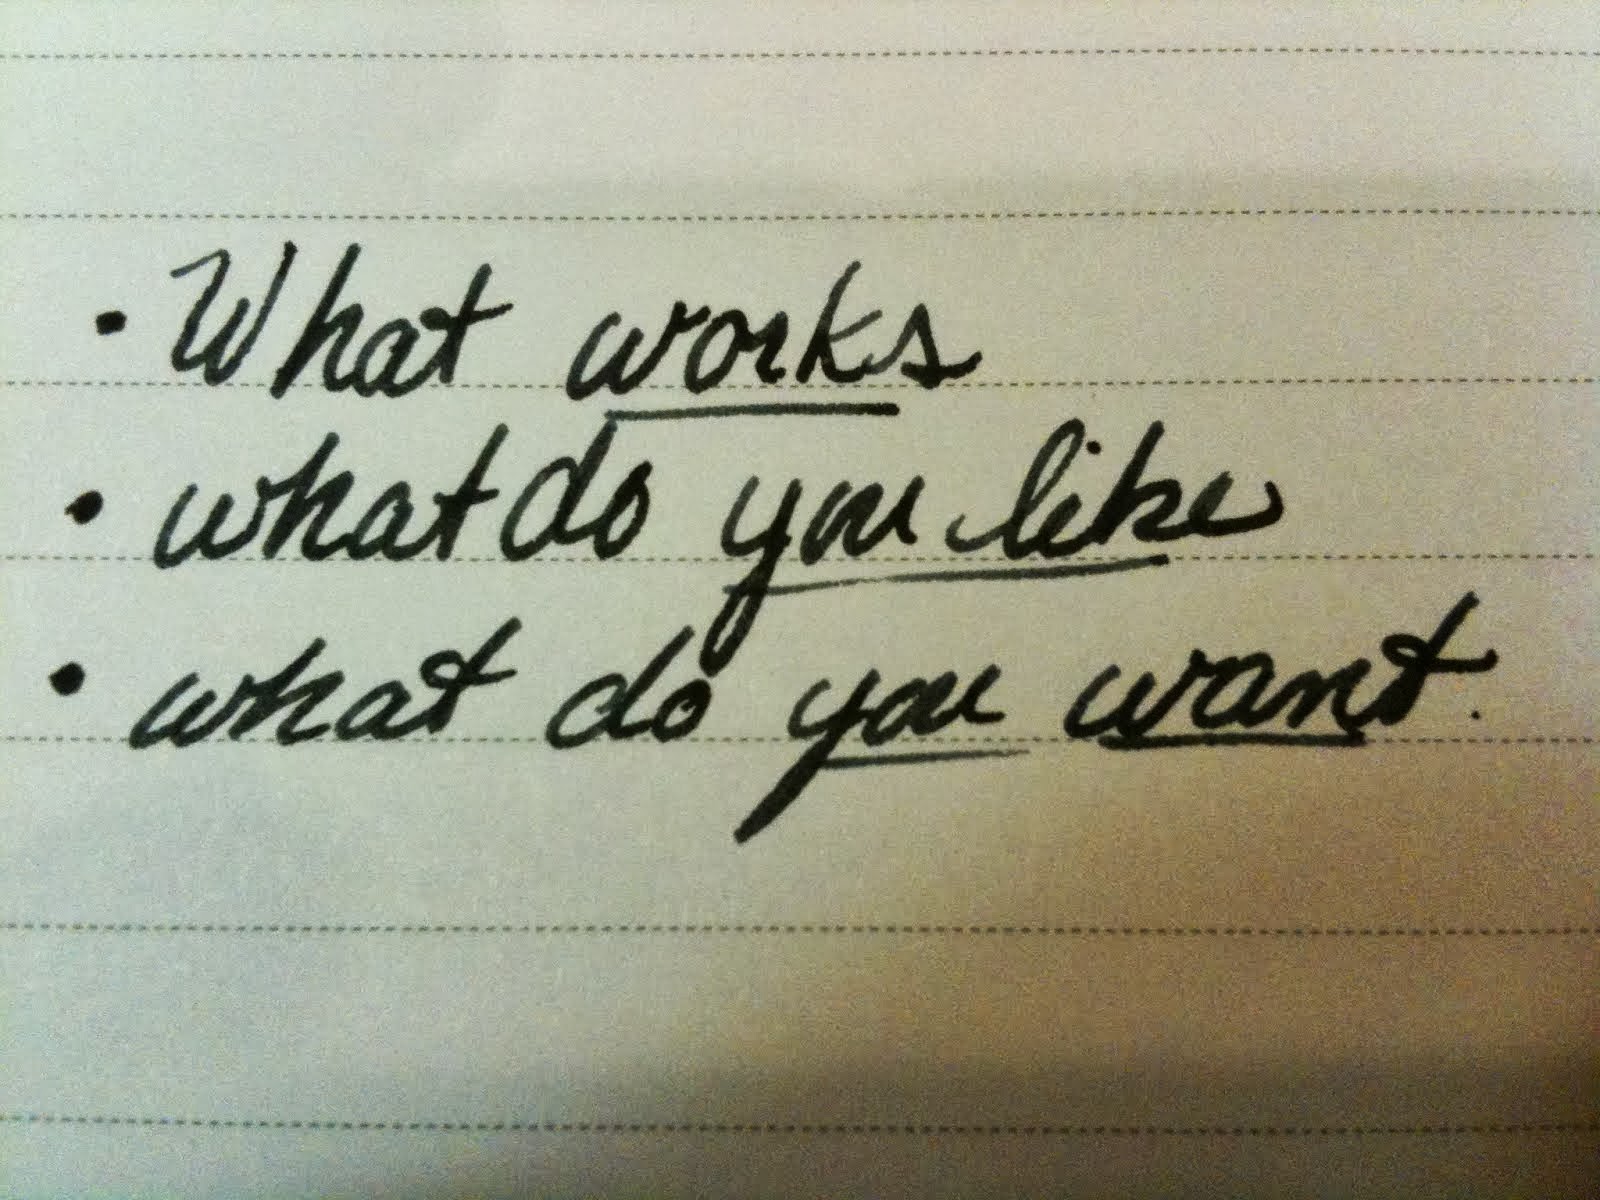 • What works
• what do you like
• what do you want.